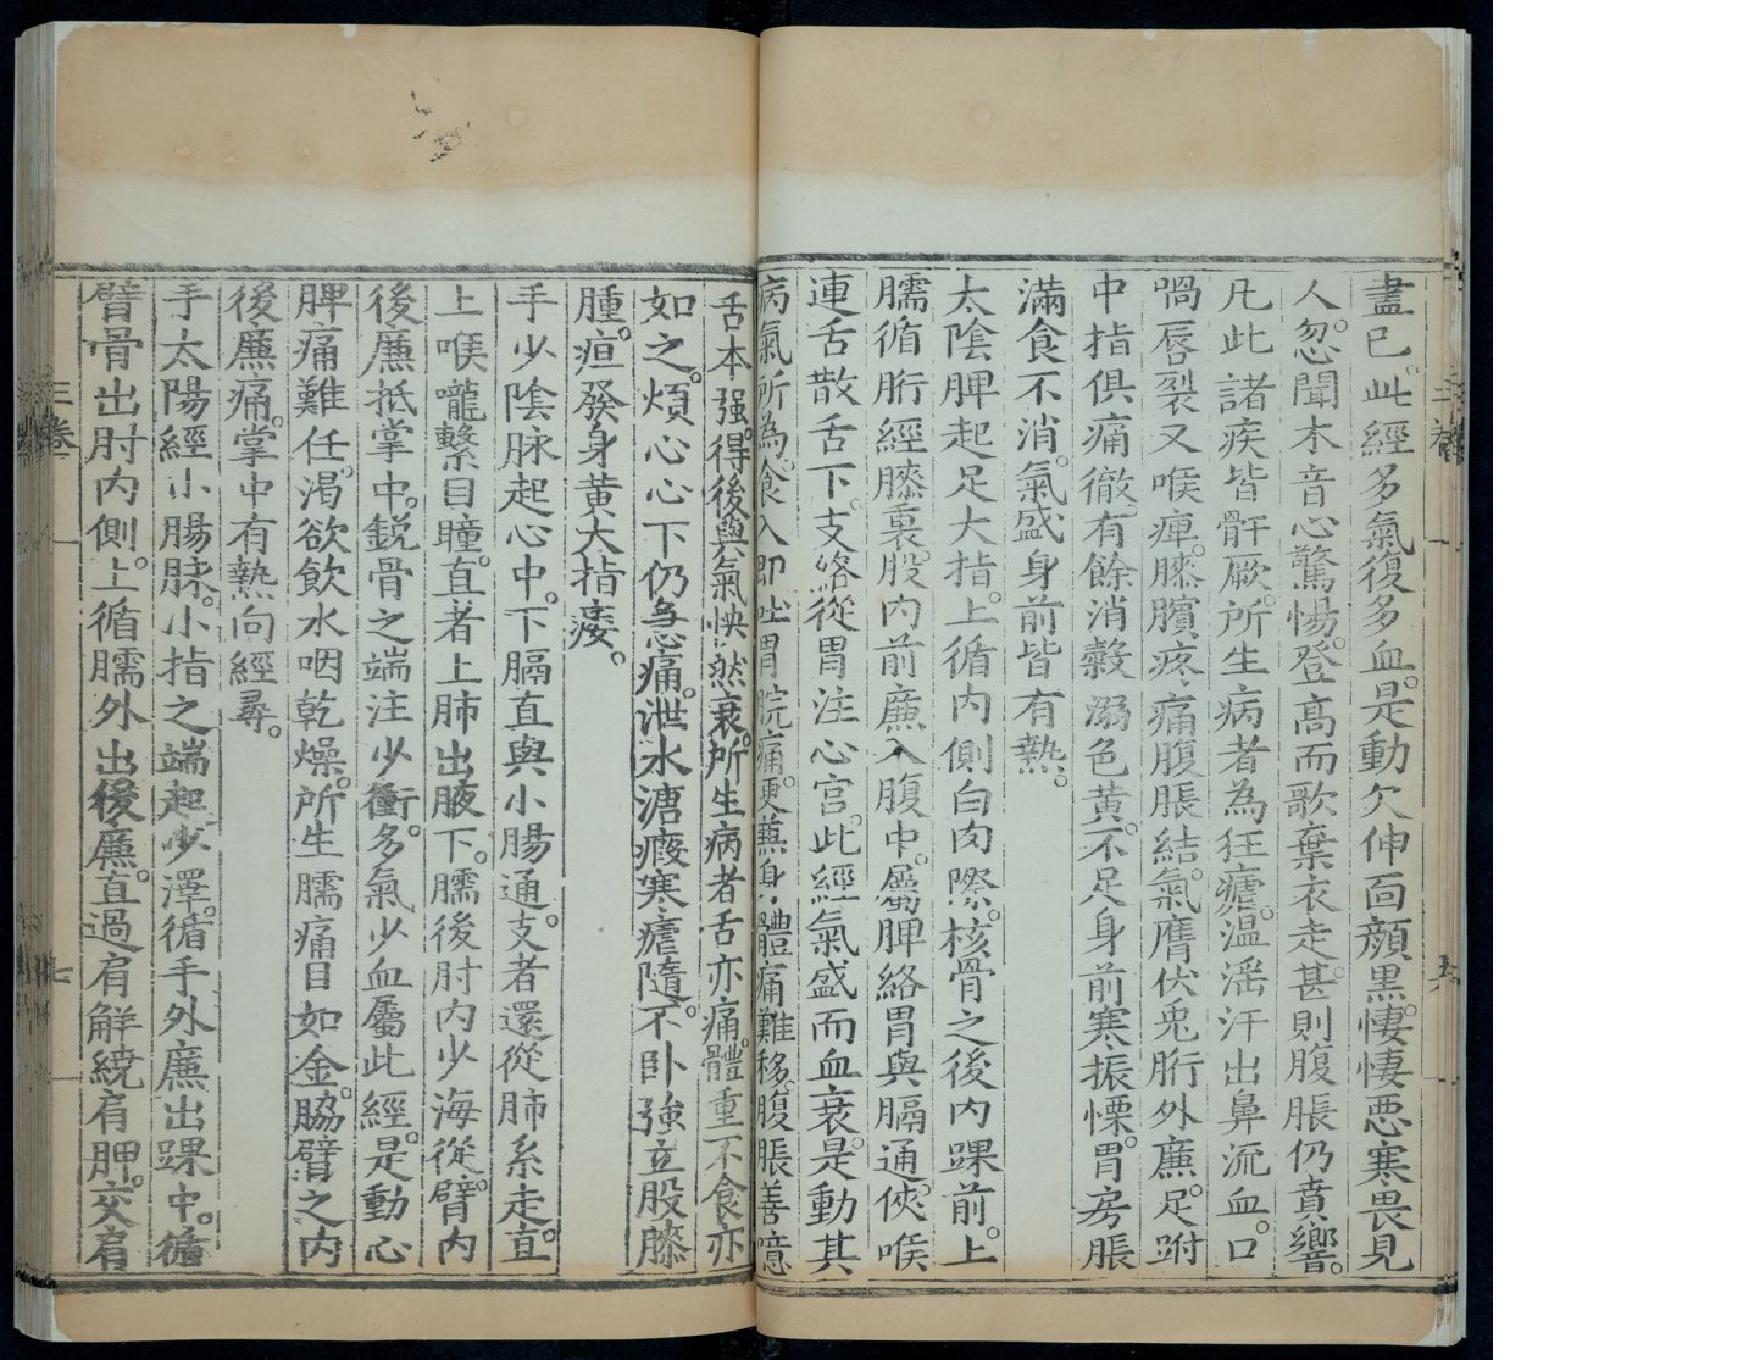 盡已。此經多氣復多血。是動欠伸面顏黑。悽悽惡寒畏見
人。忽聞木音心驚惕。登高而歌棄衣走。甚則腹脹仍賁響。
凡此諸疾皆骭厥。所生病者為狂瘧。温滛汗出鼻流血。口
喎唇裂又喉痺。膝臏疼痛腹脹結。氣膺伏兎胻外廉。足跗
中指俱痛徹。有餘消糓溺色黃。不足身前寒振慄。胃房脹
滿食不消。氣盛身前皆有熱。
太陰脾起足大指。上循内側白肉際。核骨之後内踝前。上
臑循胻經膝裏。股内前廉入腹中。屬脾絡胃與膈通。俠喉
連舌散舌下。支絡從胃注心宫。此經氣盛而血衰。是動其
病氣所為。食入即吐胃脘痛。更兼身體痛難移。腹脹善噫
舌本强。得後與氣怏然衰。所生病者舌亦痛。體重不食亦
如之。煩心心下仍急痛。泄水溏瘕寒瘧隨。不卧強立股膝
腫。疸發身黃大指痿。
手少陰脉起心中。下膈直與小腸通。支者還從肺系走。直
上喉嚨繫目瞳。直者上肺出腋下。臑後肘内少海從。臂内
後廉抵掌中。銳骨之端注少衝。多氣少血屬此經。是動心
脾痛難任。渴欲飲水咽乾燥。所生臑痛目如金。脇臂之内
後廉痛。掌中有熱向經尋。
手太陽經小腸脉。小指之端起少澤。循手外廉出踝中。循
臂骨出肘内側。上循臑外出後廉。直過肩解繞肩胛。交肩
三卷
七